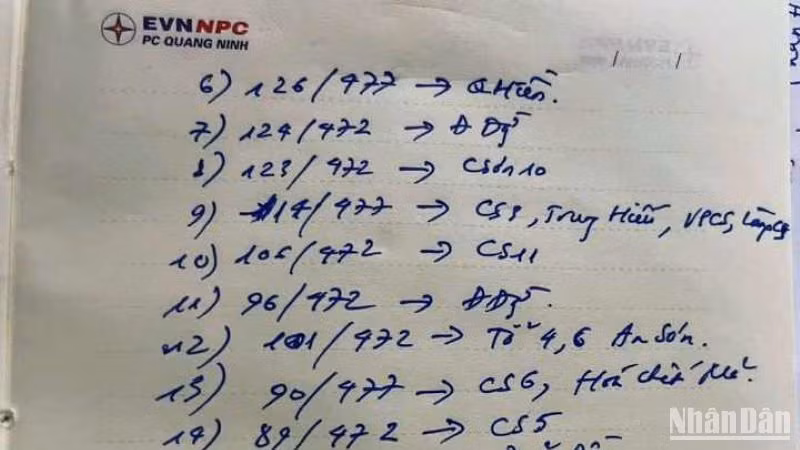 EVNNPC
PC QUANG NINH
6) 126/477 → Q Hiền.
7) 124/472 → Đ Dỹ
8) 123/472 → CSơn 10
9) 114/477 → CS9, Trung Hiếu, VPCS,
10) 106/472 → CS11
11) 96/472 → Đ Dỹ.
12) 101/472 → Tổ 4, 6 An Sơn.
13) 90/477 → CS6, Hoá chất Mỏ.
14) 89/472 → CS5
NhânDân